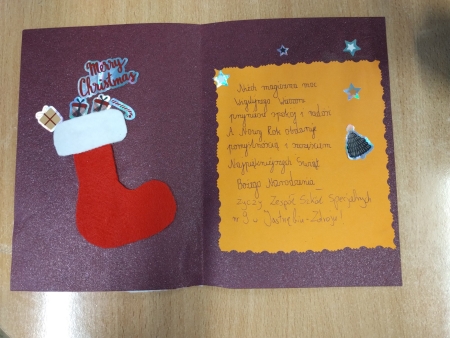 Merry
Christmas
Niech magiczna moc
Wigilijnego Wieczoru
przyniesie spokój i radość
A Nowy Rok obdaruje
pomyślnością i szczęściem
Najpiękniejszych Świąt
Bożego Narodzenia
życzy Zespół Szkół Specjalnych
nr 9 w Jastrzębiu-Zdroju!